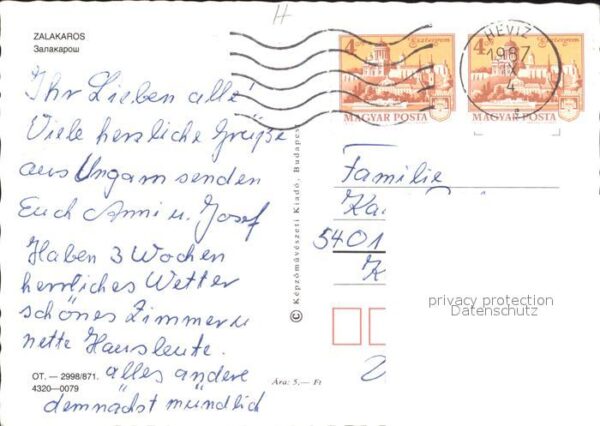 ZALAKAROS
Залакарош
H
Ihr Lieben alle!
Viele herzliche Grüße
aus Ungarn senden
Euch Anni u. Josef
Haben 3 Wochen
herrliches Wetter
schönes Zimmer u
nette Hausleute.
alles andere
demnächst mündlich
OT. — 2998/871.
4320—0079
Ára: 5,— Ft
© Képzőművészeti Kiadó, Budapest
4 Ft Esztergom
MAGYAR POSTA
4 Esztergom
MAGYAR POSTA
HÉVIZ
1987
IX
4
a
Familie
Ka
5401
K
privacy protection
Datenschutz